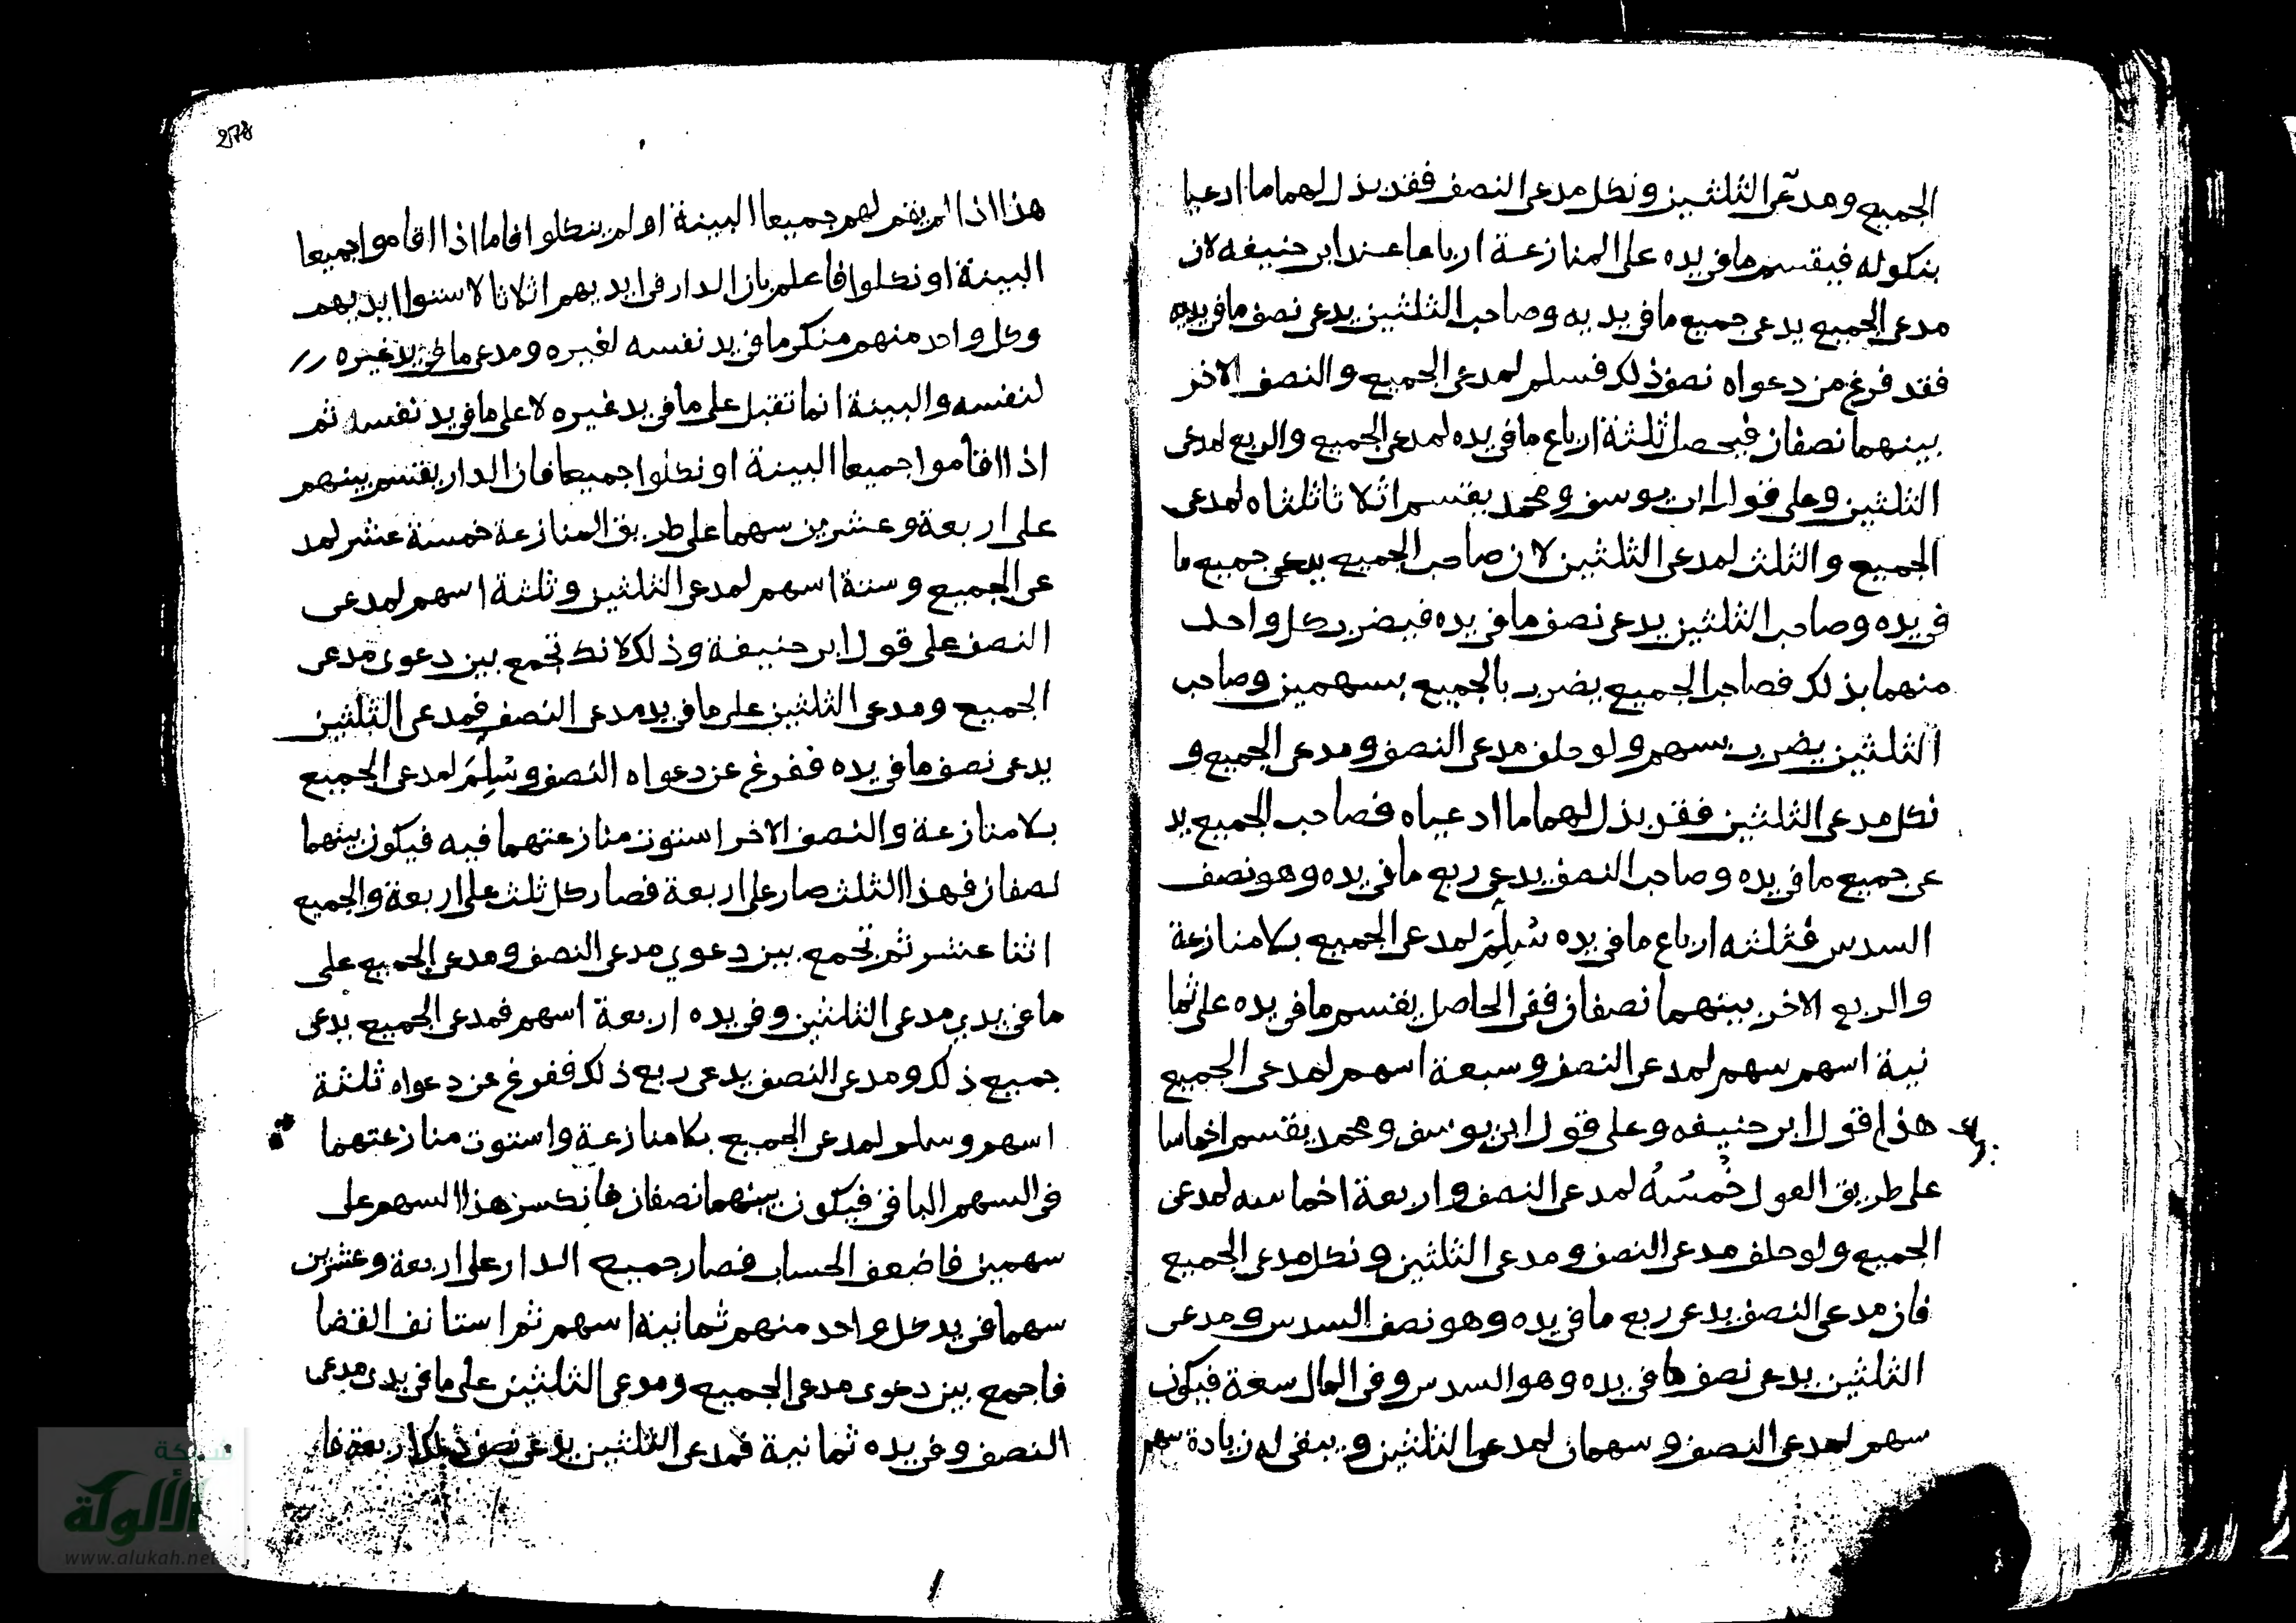 الجميع ومدعى الثلثين ونكل مدعى النصف فقد بذل لهما ما ادعيا
بنكوله فيقسم ما فى يده على المنازعة ارباعا عند ابى حنيفه لان
مدعى الجميع يدعى جميع ما فى يديه وصاحب الثلثين يدعى نصف ما فى يده
فقد فرغ من دعواه نصف ذلك فسلم لمدعى الجميع والنصف الاخر
بينهما نصفان فيحصل ثلثة ارباع ما فى يده لمدعى الجميع والربع لمدعى
الثلثين وعلى قول ابى يوسف ومحمد يقسم اثلاثا ثلثاه لمدعى
الجميع والثلث لمدعى الثلثين لان صاحب الجميع يدعى جميع ما
فى يده وصاحب الثلثين يدعى نصف ما فى يده فيضرب كل واحد
منهما بذلك فصاحب الجميع يضرب بالجميع بسهمين وصاحب
الثلثين يضرب بسهم ولو حلف مدعى النصف ومدعى الجميع و
نكل مدعى الثلثين فقد بذل لهما ما ادعياه فصاحب الجميع يد
عى جميع ما فى يده وصاحب النصف يدعى ربع ما فى يده وهو نصف
السدس فثلثه ارباع ما فى يده سُلِّمَ لمدعى الجميع بلا منازعة
والربع الاخر بينهما نصفان ففى الحاصل يقسم ما فى يده على ثما
نية اسهم سهم لمدعى النصف وسبعة اسهم لمدعى الجميع
هذا قول ابى حنيفه وعلى قول ابى يوسف ومحمد يقسم اخماسا
على طريق العول خُمسُهُ لمدعى النصف واربعة اخماسه لمدعى
الجميع ولو حلف مدعى النصف ومدعى الثلثين ونكل مدعى الجميع
فان مدعى النصف يدعى ربع ما فى يده وهو نصف السدس ومدعى
الثلثين يدعى نصف ما فى يده وهو السدس وفى المال سعة فيكون
سهم لمدعى النصف وسهمان لمدعى الثلثين ويبقى له زيادة سهم
2578
هذا اذا لم يقم لهم جميعا البينة او لم ينكلوا فاما اذا اقاموا جميعا
البينة او نكلوا فاعلم بان الدار فى ايديهم اثلاثا لاستوا ايديهم
وكل واحد منهم منكر ما فى يد نفسه لغيره ومدعى ما فى يد غيره
لنفسه والبينة انما تقبل على ما فى يد غيره لا على ما فى يد نفسه ثم
اذا اقاموا جميعا البينة او نكلوا جميعا فان الدار يقسم بينهم
على اربعة وعشرين سهما على طريق المنازعة خمسة عشر لمد
عى الجميع وستة اسهم لمدعى الثلثين وثلثة اسهم لمدعى
النصف على قول ابى حنيفة وذلك لانك تجمع بين دعوى مدعى
الجميع ومدعى الثلثين على ما فى يد مدعى النصف فمدعى الثلثين
يدعى نصف ما فى يده ففرغ عن دعواه النصف وسُلِّمَ لمدعى الجميع
بلا منازعة والنصف الاخر استوت منازعتهما فيه فيكون بينهما
نصفان فهذا الثلث صار على اربعة فصار كل ثلث على اربعة والجميع
اثنا عشر ثم تجمع بين دعوى مدعى النصف ومدعى الجميع على
ما فى يدى مدعى الثلثين وفى يده اربعة اسهم فمدعى الجميع يدعى
جميع ذلك ومدعى النصف يدعى ربع ذلك ففرغ عن دعواه ثلثة
اسهم وسلم لمدعى الجميع بلا منازعة واستوت منازعتهما
فى السهم الباقى فيكون بينهما نصفان فانكسر هذا السهم على
سهمين فاضعف الحساب فصار جميع الدار على اربعة وعشرين
سهما فى يد كل واحد منهم ثمانية اسهم ثم استانف القضا
فاجمع بين دعوى مدعى الجميع ومدعى الثلثين على ما فى يدى مدعى
النصف وفى يده ثمانية فمدعى الثلثين يدعى نصف ذلك اربعة فا
شبكة
الألوكة
www.alukah.net